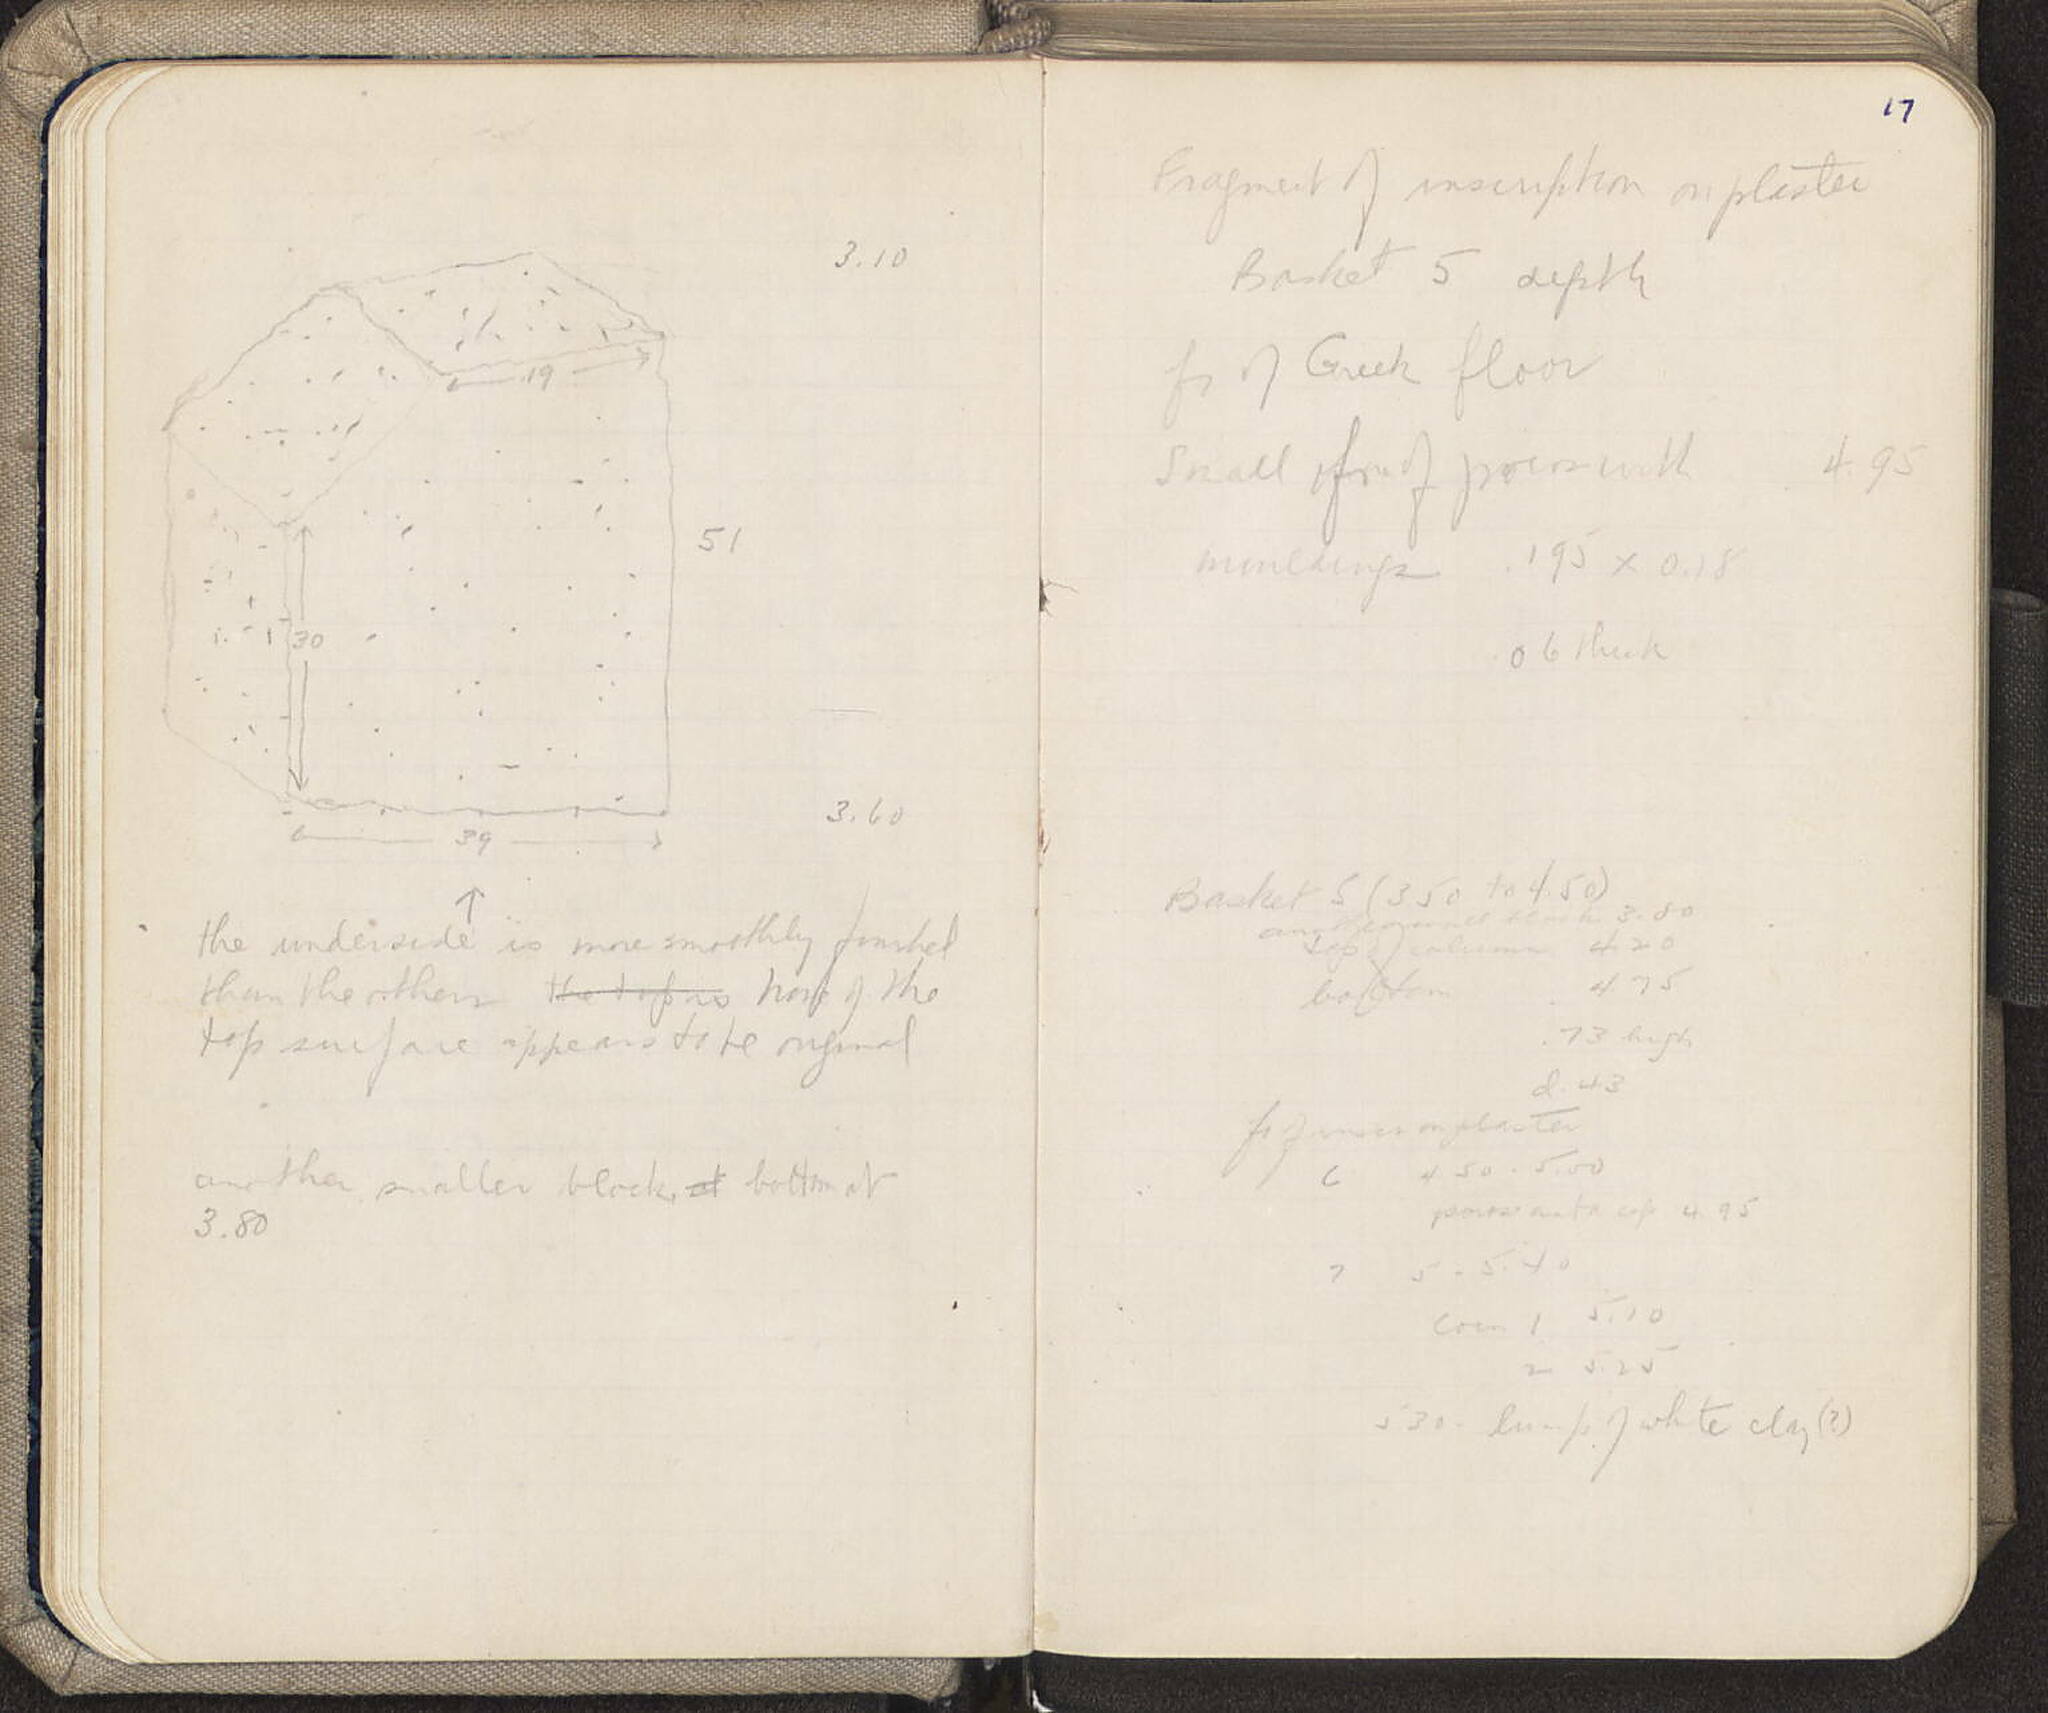 3.10
19
51
30
3.60
39
the underside is more smoothly finished
than the others the top is None of the
top surface appears to be original
another smaller block, at bottom at
3.80
17
Fragment of inscription on plaster
Basket 5 depth
fr of Greek floor
Small of poros with 4.95
mouldings .195 x 0.18
.06 thick
Basket 5 (3.50 to 4.50)
another block 3.80
top of column 4.20
bottom 4.95
.73 high
d. .43
fr of inscr on plaster
6 4.50 - 5.00
poros 4.95
7 5 - 5.40
Coin 1 5.10
2 5.25
5.30 - lump of white clay (?)